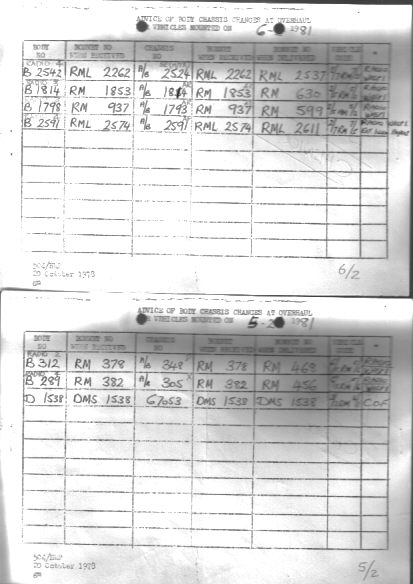 ADVICE OF BODY CHASSIS CHANGES AT OVERHAUL
VEHICLES MOUNTED ON 6- 1981
BODY NO BONNET NO WHEN RECEIVED CHASSIS NO BONNET WHEN RECEIVED BONNET NO WHEN DELIVERED VEHICLE CODE
RADIO
B 2542 RML 2262 A/B 2524 RML 2262 RML 2537
B 1814 RM 1853 A/B 1814 RM 1853 RM 630
B 1798 RM 937 A/B 1793 RM 937 RM 599
B 2591 RML 2574 A/B 2591 RML 2574 RML 2611
20 October 1978
6/2
ADVICE OF BODY CHASSIS CHANGES AT OVERHAUL
VEHICLES MOUNTED ON 5-2 1981
BODY NO BONNET NO WHEN RECEIVED CHASSIS NO BONNET WHEN RECEIVED BONNET NO WHEN DELIVERED VEHICLE CODE
RADIO
B 312 RM 378 A/B 348 RM 378 RM 463
B 289 RM 382 305 RM 382 RM 456
D 1538 DMS 1538 67053 DMS 1538 DMS 1538 COF
20 October 1978
5/2